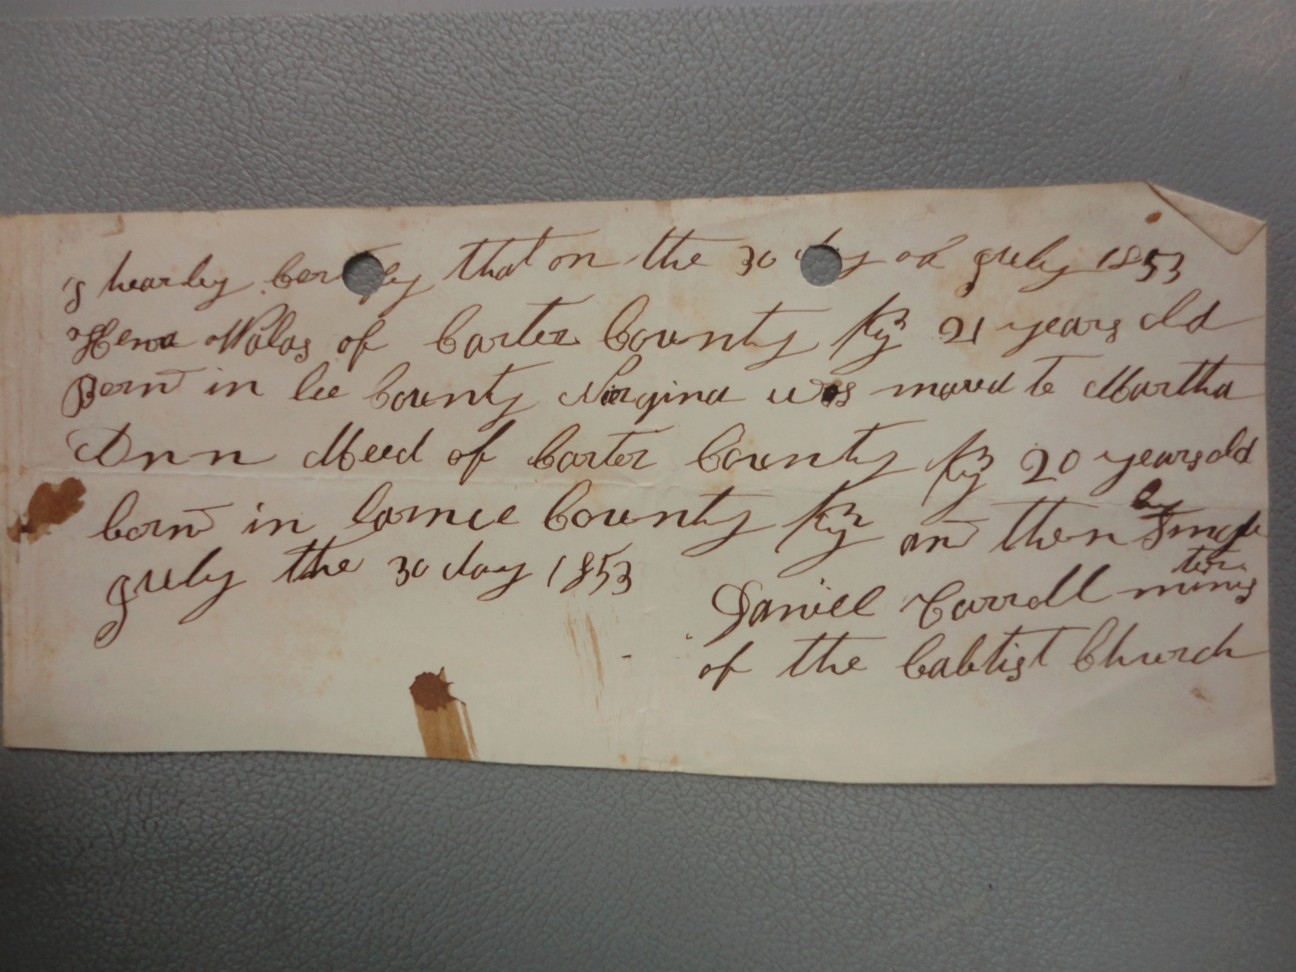 I hearby cer fy that on the 30 d y of July 1853
of Carter County Ky 21 years old
Born in lee County Virgina was mared to Martha
Ann Meed of Carter County Ky 20 years old
born in County Ky on then by
July the 30 day 1853
Daniel Carrell minis ter
of the babtist Church